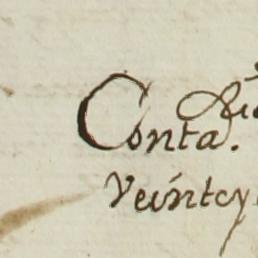 Conta.
Veínte y